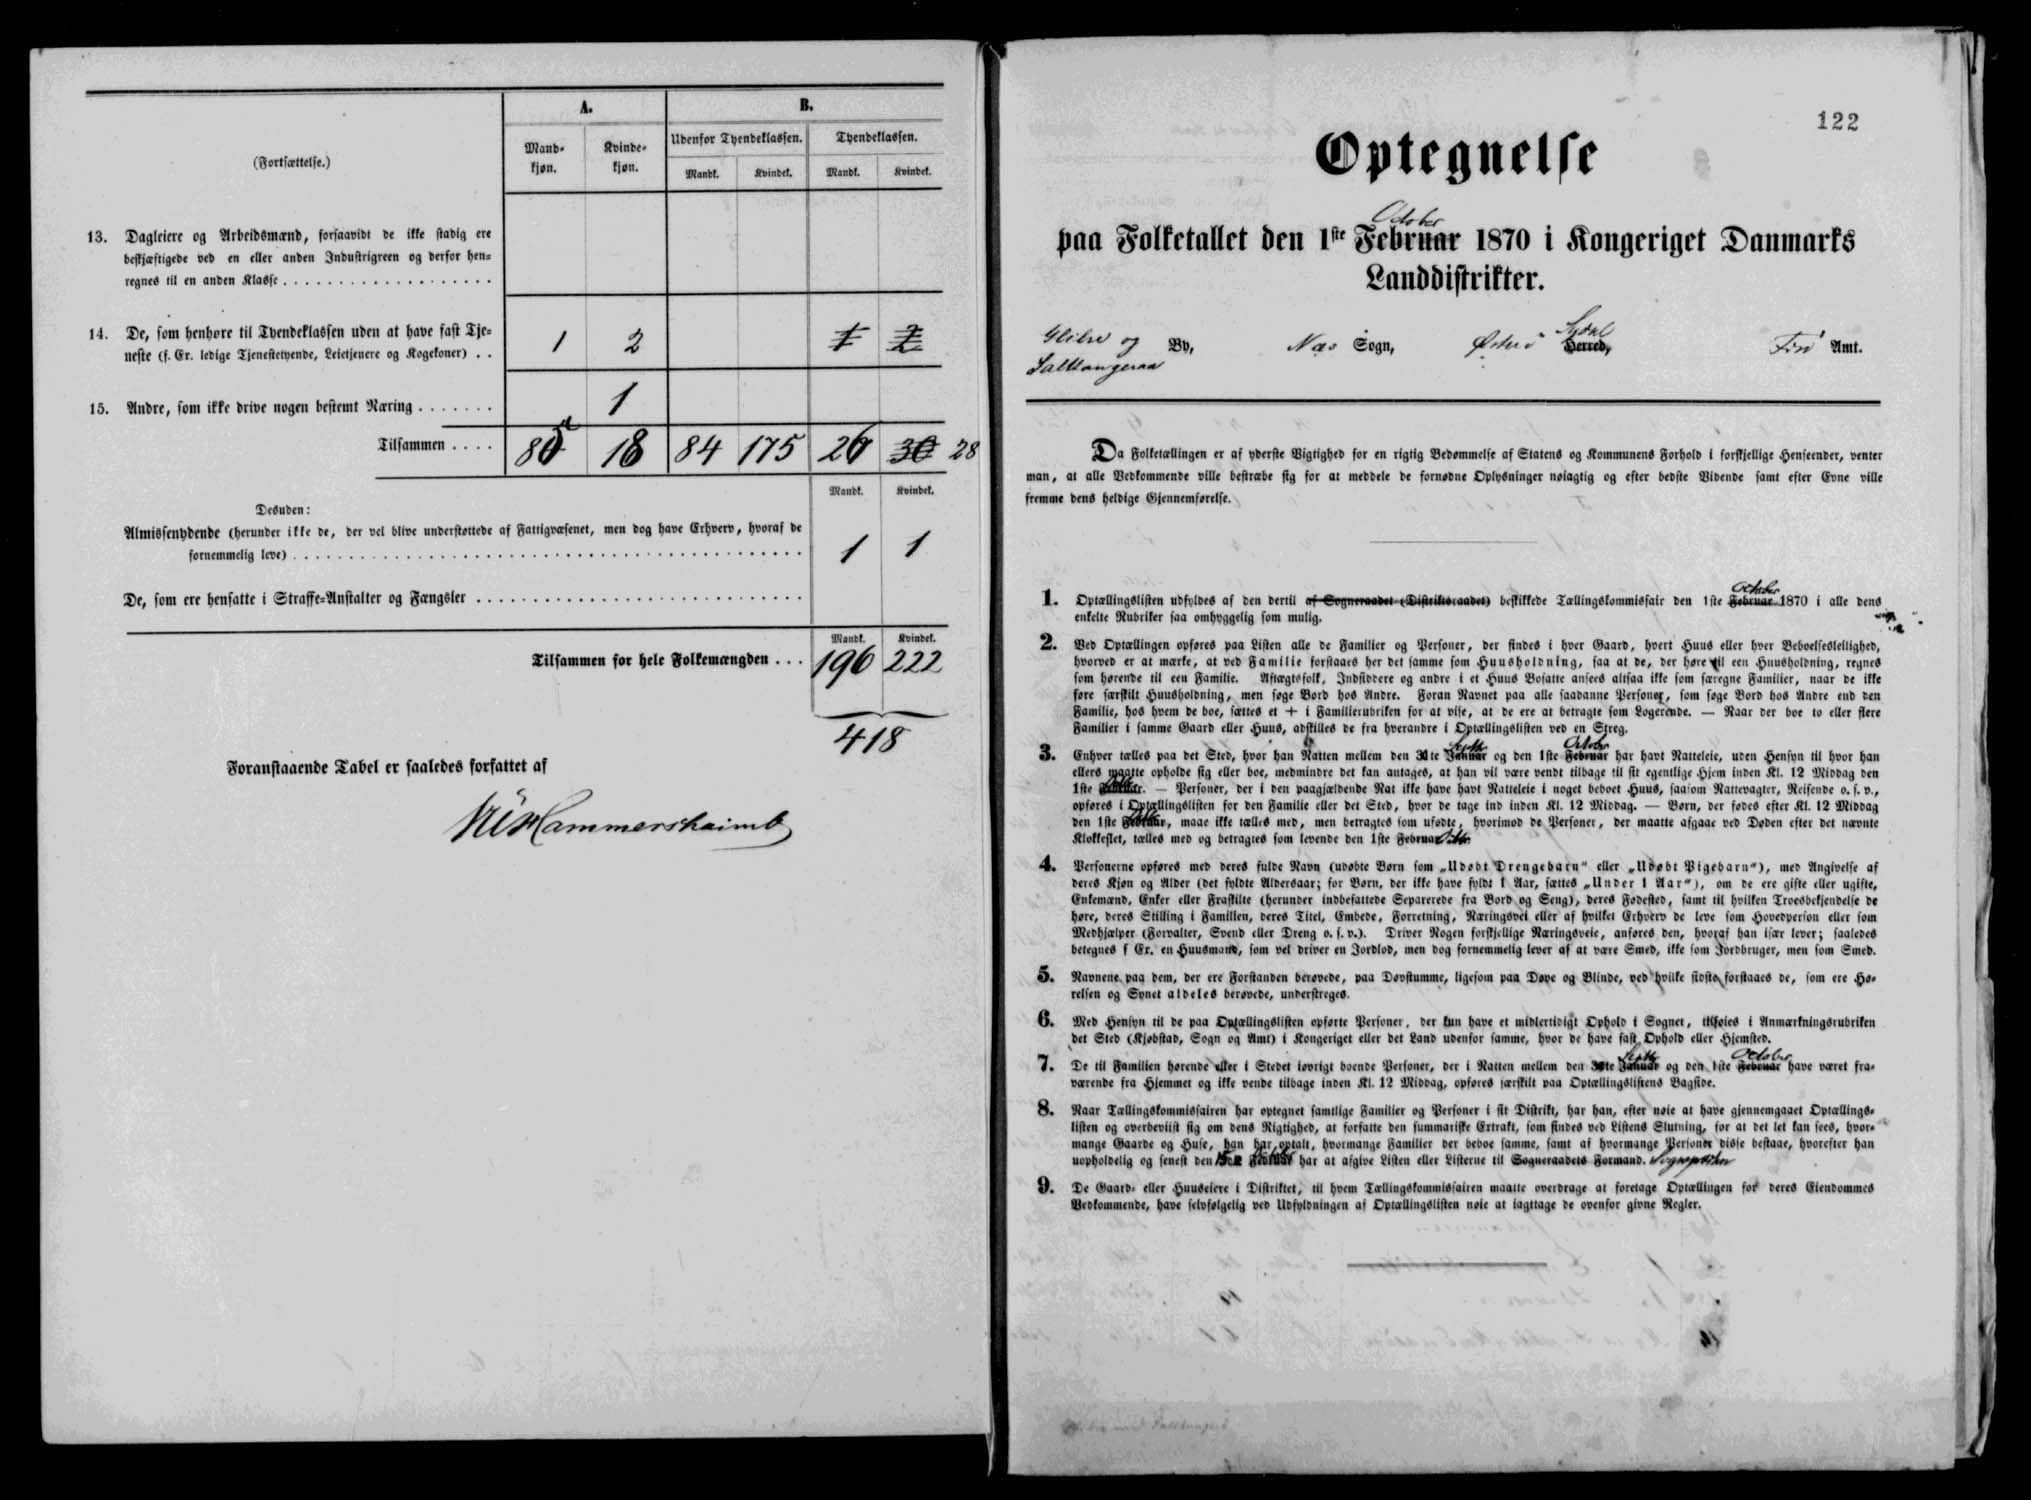 (Fortsættelse.)
A.
B.
Mandkjøn.
Kvindekjøn.
Udenfor Tyendeklassen.
Tyendeklassen.
Mandk.
Kvindek.
Mandk.
Kvindek.
13. Dagleiere og Arbeidsmænd, forsaavidt de ikke stadig ere
beskjæftigede ved en eller anden Industrigreen og derfor hen-
regnes til en anden Klasse
14. De, som henhøre til Tyendeklassen uden at have fast Tje-
neste (f. Ex. ledige Tjenestetyende, Leietjenere og Kogekoner) . . 1 2 1 2
15. Andre, som ikke drive nogen bestemt Næring 1
Tilsammen . . . . 18 84 175 26 30 28
Mandk. Kvindek.
Desuden:
Almissenydende (herunder ikke de, der vel blive understøttede af Fattigvæsenet, men dog have Erhverv, hvoraf de
fornemmelig leve) 1 1
De, som ere hensatte i Straffe-Anstalter og Fængsler
Mandk. Kvindek.
Tilsammen for hele Folkemængden . . . 196 222
418
Foranstaaende Tabel er saaledes forfattet af
Hammershaimb
122
Optegnelse
October
paa Folketallet den 1ste Februar 1870 i Kongeriget Danmarks
Landdistrikter.
Glibre og By, Næs Sogn, Østerø Sydsl Herred, Færø Amt.
Saltangeraa
Da Folketællingen er af yderste Vigtighed for en rigtig Bedømmelse af Statens og Kommunens Forhold i forskjellige Henseender, venter
man, at alle Vedkommende ville bestræbe sig for at meddele de fornødne Oplysninger nøiagtig og efter bedste Vidende samt efter Evne ville
fremme dens heldige Gjennemførelse.
October
1. Optællingslisten udfyldes af den dertil af Sogneraadet (Distriktsraadet) beskikkede Tællingskommissair den 1ste Februar 1870 i alle dens
enkelte Rubriker saa omhyggelig som mulig.
2. Ved Optællingen opføres paa Listen alle de Familier og Personer, der findes i hver Gaard, hvert Huus eller hver Beboelsesleilighed,
hvorved er at mærke, at ved Familie forstaaes her det samme som Huusholdning, saa at de, der høre til een Huusholdning, regnes
som hørende til een Familie. Aftægtsfolk, Indsiddere og andre i et Huus Bosatte ansees altsaa ikke som særegne Familier, naar de ikke
føre særskilt Huusholdning, men søge Bord hos Andre. Foran Navnet paa alle saadanne Personer, som søge Bord hos Andre end den
Familie, hos hvem de boe, sættes et + i Familierubriken for at vise, at de ere at betragte som Logerende. — Naar der boe to eller flere
Familier i samme Gaard eller Huus, adskilles de fra hverandre i Optællingslisten ved en Streg.
Septb October
3. Enhver tælles paa det Sted, hvor han Natten mellem den 31te Januar og den 1ste Februar har havt Natteleie, uden Hensyn til hvor han
ellers maatte opholde sig eller boe, medmindre det kan antages, at han vil være vendt tilbage til sit egentlige Hjem inden Kl. 12 Middag den
1ste Februar. — Personer, der i den paagjældende Nat ikke have havt Natteleie i noget beboet Huus, saasom Nattevagter, Reisende o. s. v.,
opføres i Optællingslisten for den Familie eller det Sted, hvor de tage ind inden Kl. 12 Middag. — Børn, der fødes efter Kl. 12 Middag
den 1ste Februar, maae ikke tælles med, men betragtes som ufødte, hvorimod de Personer, der maatte afgaae ved Døden efter det nævnte
Klokkeslet, tælles med og betragtes som levende den 1ste Februar Octbr.
4. Personerne opføres med deres fulde Navn (udøbte Børn som „Udøbt Drengebarn“ eller „Udøbt Pigebarn“), med Angivelse af
deres Kjøn og Alder (det fyldte Aldersaar; for Børn, der ikke have fyldt 1 Aar, sættes „Under 1 Aar“), om de ere gifte eller ugifte,
Enkemænd, Enker eller Fraskilte (herunder indbefattede Separerede fra Bord og Seng), deres Fødested, samt til hvilken Troesbekjendelse de
høre, deres Stilling i Familien, deres Titel, Embede, Forretning, Næringsvei eller af hvilket Erhverv de leve som Hovedperson eller som
Medhjælper (Forvalter, Svend eller Dreng o. s. v.). Driver Nogen forskjellige Næringsveie, anføres den, hvoraf han især lever; saaledes
betegnes f Ex. en Huusmand, som vel driver en Jordlod, men dog fornemmelig lever af at være Smed, ikke som Jordbruger, men som Smed.
5. Navnene paa dem, der ere Forstanden berøvede, paa Døvstumme, ligesom paa Døve og Blinde, ved hvilke sidste forstaaes de, som ere Hø-
relsen og Synet aldeles berøvede, understreges.
6. Med Hensyn til de paa Optællingslisten opførte Personer, der kun have et midlertidigt Ophold i Sognet, tilføies i Anmærkningsrubriken
det Sted (Kjøbstad, Sogn og Amt) i Kongeriget eller det Land udenfor samme, hvor de have fast Ophold eller Hjemsted.
Septb October
7. De til Familien hørende eller i Stedet iøvrigt boende Personer, der i Natten mellem den 31te Januar og den 1ste Februar have været fra-
værende fra Hjemmet og ikke vende tilbage inden Kl. 12 Middag, opføres særskilt paa Optællingslistens Bagside.
8. Naar Tællingskommissairen har optegnet samtlige Familier og Personer i sit Distrikt, har han, efter nøie at have gjennemgaaet Optællings-
listen og overbeviist sig om dens Rigtighed, at forfatte den summariske Extrakt, som findes ved Listens Slutning, for at det let kan sees, hvor-
mange Gaarde og Huse, han har optalt, hvormange Familier der beboe samme, samt af hvormange Personer disse bestaae, hvorefter han
uopholdelig og senest den Februar har at afgive Listen eller Listerne til Sogneraadets Formand. Sognepræsten
9. De Gaard- eller Huuseiere i Distriktet, til hvem Tællingskommissairen maatte overdrage at foretage Optællingen for deres Eiendommes
Vedkommende, have selvfølgelig ved Udfyldningen af Optællingslisten nøie at iagttage de ovenfor givne Regler.